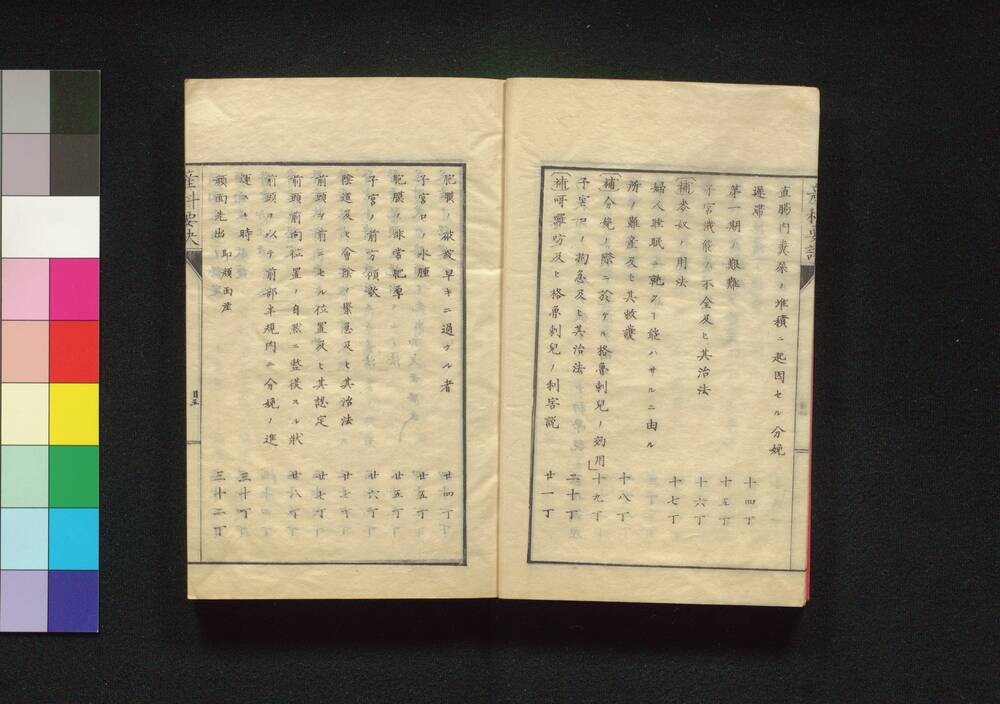 直膓內糞藥ノ堆積ニ起因セル分娩
遲滞 十四丁
第一期ノ艱難 十五丁
子宮機能ノ不全及ヒ其治法 十六丁
〔補〕麥奴ノ用法 十七丁
婦人睡眠ニ就クー能ハサルニ由ル
所ノ難產及ヒ其救護 十八丁
〔補〕分娩ノ際ニ於ケル格魯刺兒ノ効用」 十九丁
子宮口ノ拘急及ヒ其治法 二十丁
〔補〕呀羅叻及ヒ格魯刺兒ノ利害説 廿一丁
產科要訣
胞膜ノ破裂早キニ過クル者 廿四丁
子宮口ノ水腫 廿五丁
胞膜ノ非常肥厚 廿五丁
子宮ノ前方傾欹 廿六丁
陰道及ヒ會陰ノ緊急及ヒ其治法 廿七丁
前頭ヲ前ニセル位置及ヒ其認定 廿七丁
前頭前向位置ノ自然ニ整復スル狀 廿八丁
前頭ヲ以テ前部半規內ニ分娩ノ進
運スル時 三十丁
顏面先出 即顏面產 三十二丁
產科要訣
目五